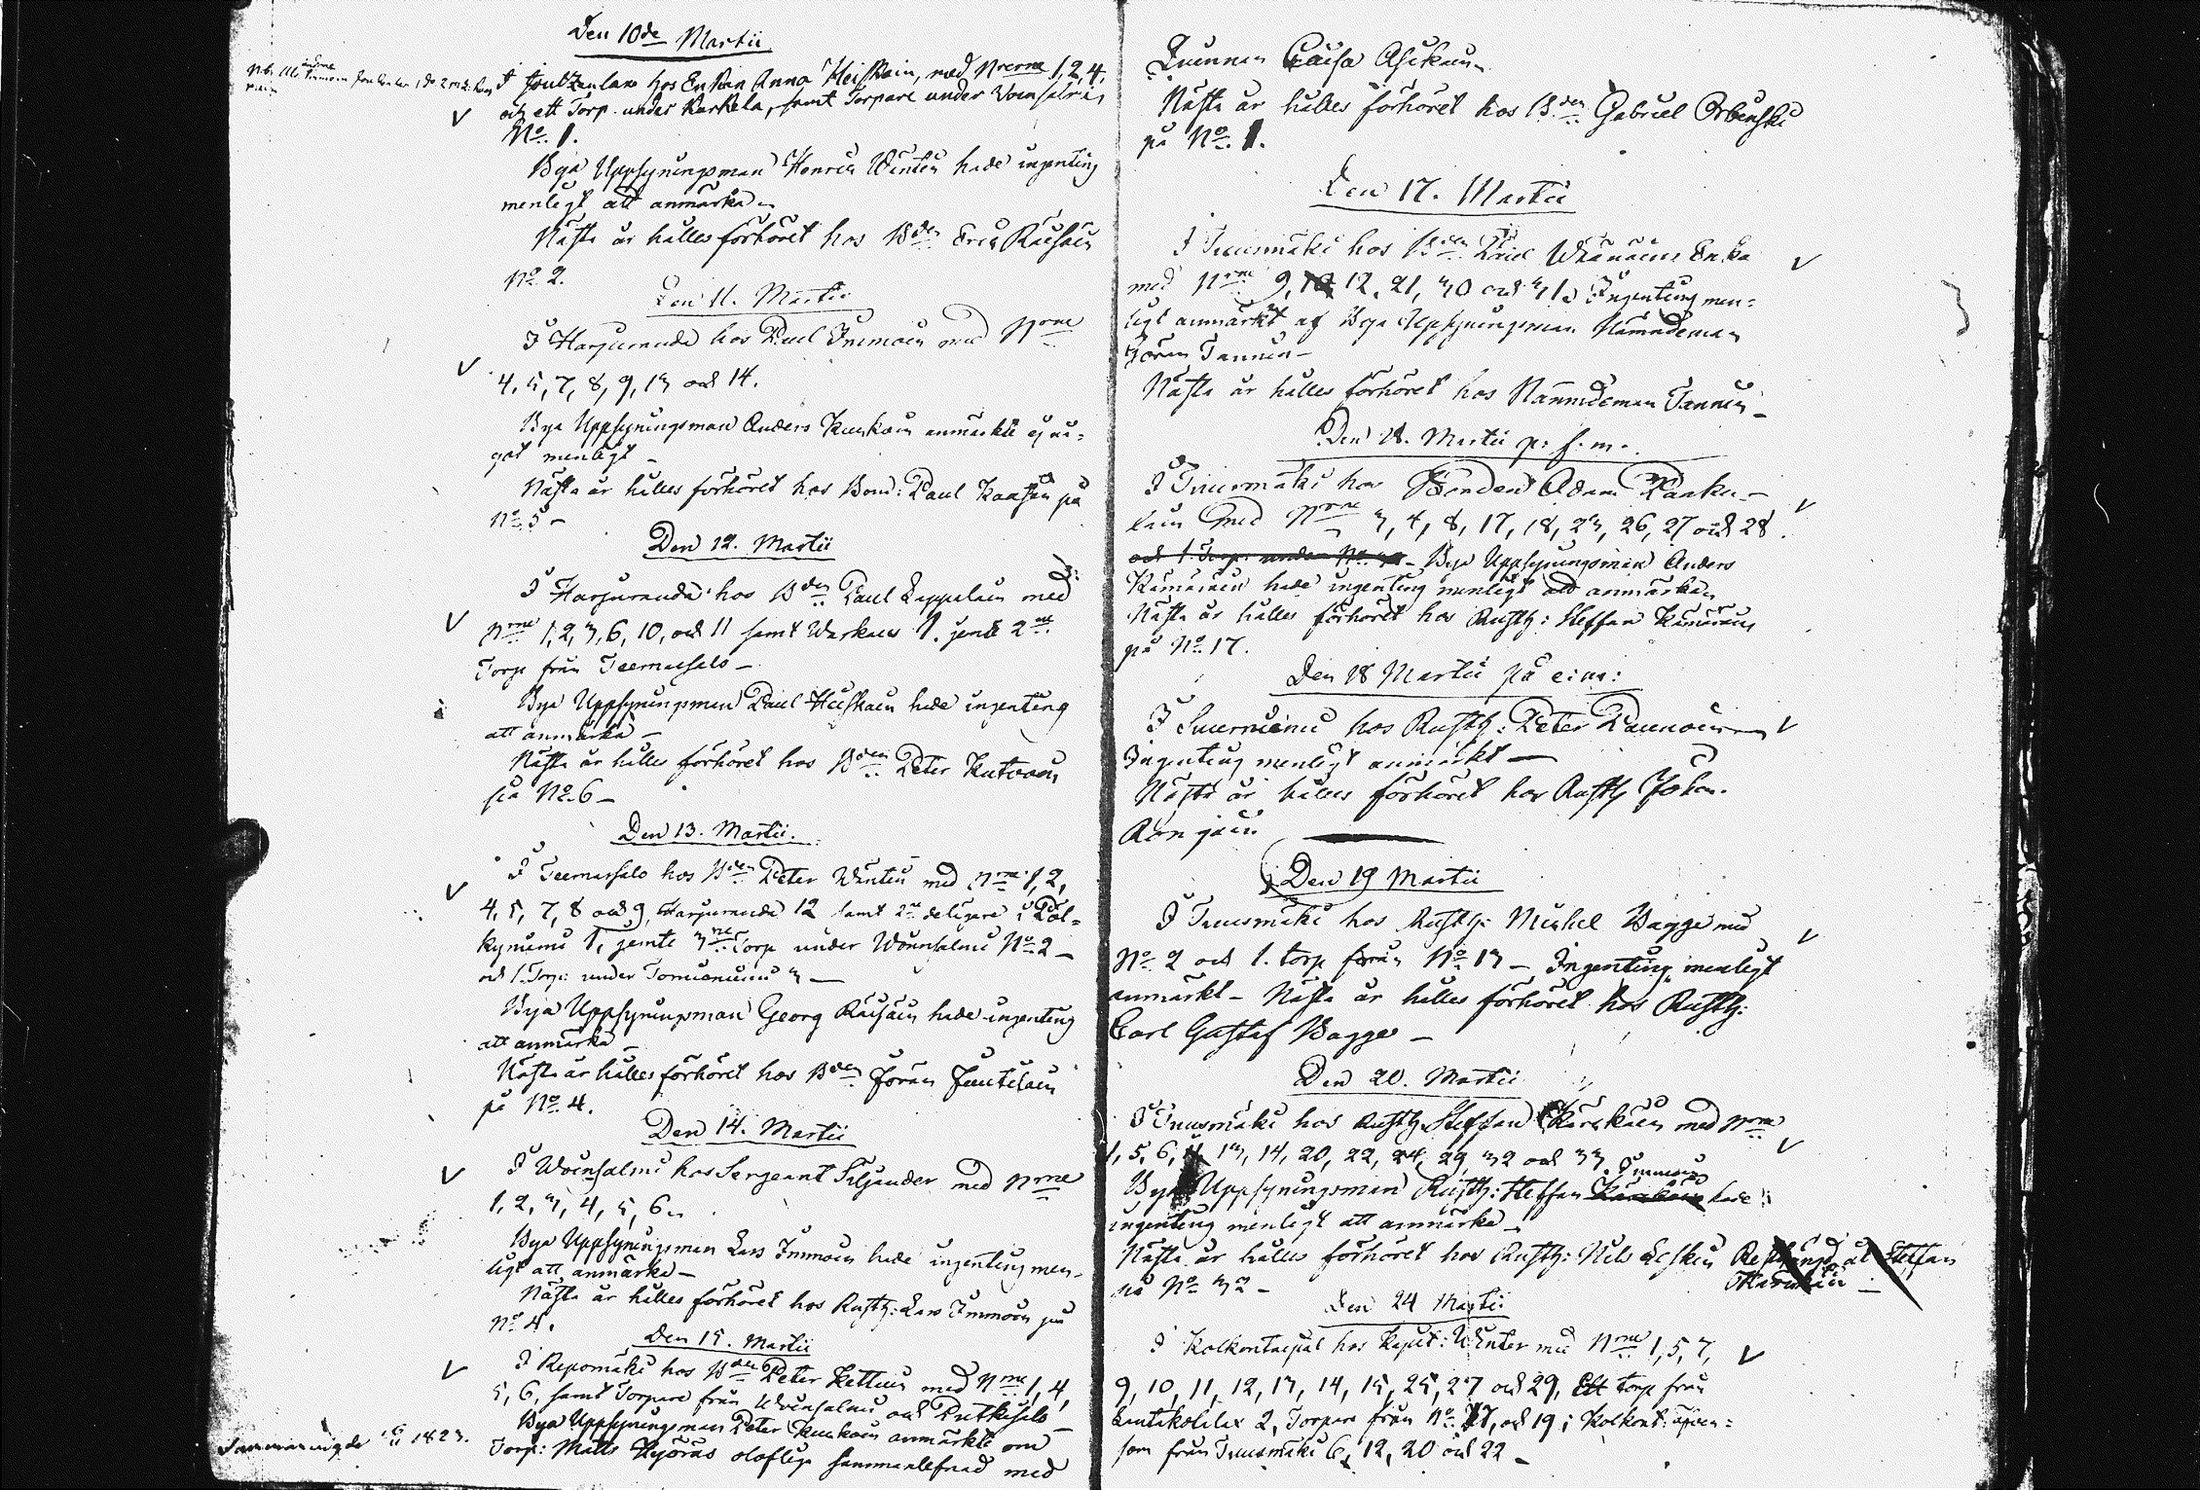 Den 10de Martii
hos Enkan Anna Heiskain, med Nrerne 1, 2, 4.
och ett Torp under Karkela, samt Torpare under Woinsalmi
No. 1.
Bya Uppsyningsman Henric Wintin hade ingenting
menligt att anmärka
Nästa år hålles förhöret hos Bden Eric Räisäin
No 2.
Den 11. Martii
I Harjuranda hos Paul Immoin med Nrne
4, 5, 7, 8, 9, 13 och 14.
Bya Uppsyningsman Anders anmärkte ej nå=
got menligt –
Nästa år hålles förhöret hos Bond: Paul på
No 5 –
Den 12. Martii
I Harjuranda hos Bden Paul Lappalain med
Nrne 1, 2, 3, 6, 10, och 11 samt 1. jemte 2ne
Torp från Teemassalo –
Bya Uppsyningsman Paul Heiskain hade ingenting
att anmärka –
Nästa år hålles förhöret hos Bden Peter Kutvoin
på No. 6 –
Den 13. Martii.
I Teemassalo hos Bden Peter Wintin med Nrne 1, 2,
4, 5, 7, 8 och 9, Harjuranda 12 samt 2ne delägare i Pöl=
kyniemi 1, jemte 3ne Torp under Woinsalmi No 2 –
och 1. Torp: under 3 –
Bya Uppsyningsman Georg Räisäin hade ingenting
att anmärka –
Nästa år hålles förhöret hos Bden Jöran
på No. 4.
Den 14. Martii
I Woinsalmi hos Sergeant Siljander med Nrne
1, 2, 3, 4, 5, 6.
Bya Uppsyningsman Lars Immoin hade ingenting men-
ligt att anmärka –
Nästa år hålles förhöret hos Rusth: Lars Immoin på
No 4.
Den 15. Martii
I Repomäki hos Bden Peter Kettuin med Nrne 1, 4,
5, 6, samt Torpare från Woinsalmi och Putkisalo –
Bya Uppsyningsman Peter anmärkte om
Torp: Matts olofliga sammanlefnad med
1823.
Quinnan Caisa
Nästa år hålles förhöret hos Bden Gabriel Orbinski
på No. 1.
Den 17. Martii
I Tuusmäki hos Bden Wäänäins Enka
med Nrne 9, 12, 21, 30 och 31. Ingenting men=
ligt anmärkt af Bya Uppsyningsman Nämndeman
Göran Tannin –
Nästa år hålles förhöret hos Nämndeman Tannin –
Den 18. Martii p: f. m.
I Tuusmäki hos Bonden Adam
med Nrne 3, 4, 8, 17, 18, 23, 26, 27 och 28.
och 1. Torp: under No – Bya Uppsyningsman Anders
Kämäräin hade ingenting menligt att anmärka
Nästa år hålles förhöret hos Rusth: Steffan Kämäräin
på No. 17.
Den 18 Martii på e.m:
I hos Rusth: Peter Paunoin
Ingenting menligt anmärkt –
Nästa år hålles förhöret hos Rusth Johan
Den 19 Martii
I Tuusmäki hos Rusth: Michel Bagge med
No 2 och 1. torp från No 13 – Ingenting menligt
anmärkt – Nästa år hålles förhöret hos Rusth:
Carl Gustaf Bagge –
Den 20. Martii
I Tuusmäki hos Rusth Steffan Käräkäin med Nrne
1, 5, 6, 13, 14, 20, 22, 24, 29, 32 och 33. Immoin
Bya Uppsyningsman Rusth: Steffan hade
ingenting menligt att anmärka –
Nästa år hålles förhöret hos Rusth: Nils Eskin
på No 32 –
Steffan
Den 24 Martii
I Kolkontaipal hos Kapit: Winter med Nrne 1, 5, 7,
9, 10, 11, 12, 13, 14, 15, 25, 27 och 29, Ett torp från
2, Torpare från No. 17, och 19 i Kolkont: äfven=
som från Tuusmäki 6, 12, 20 och 22 –